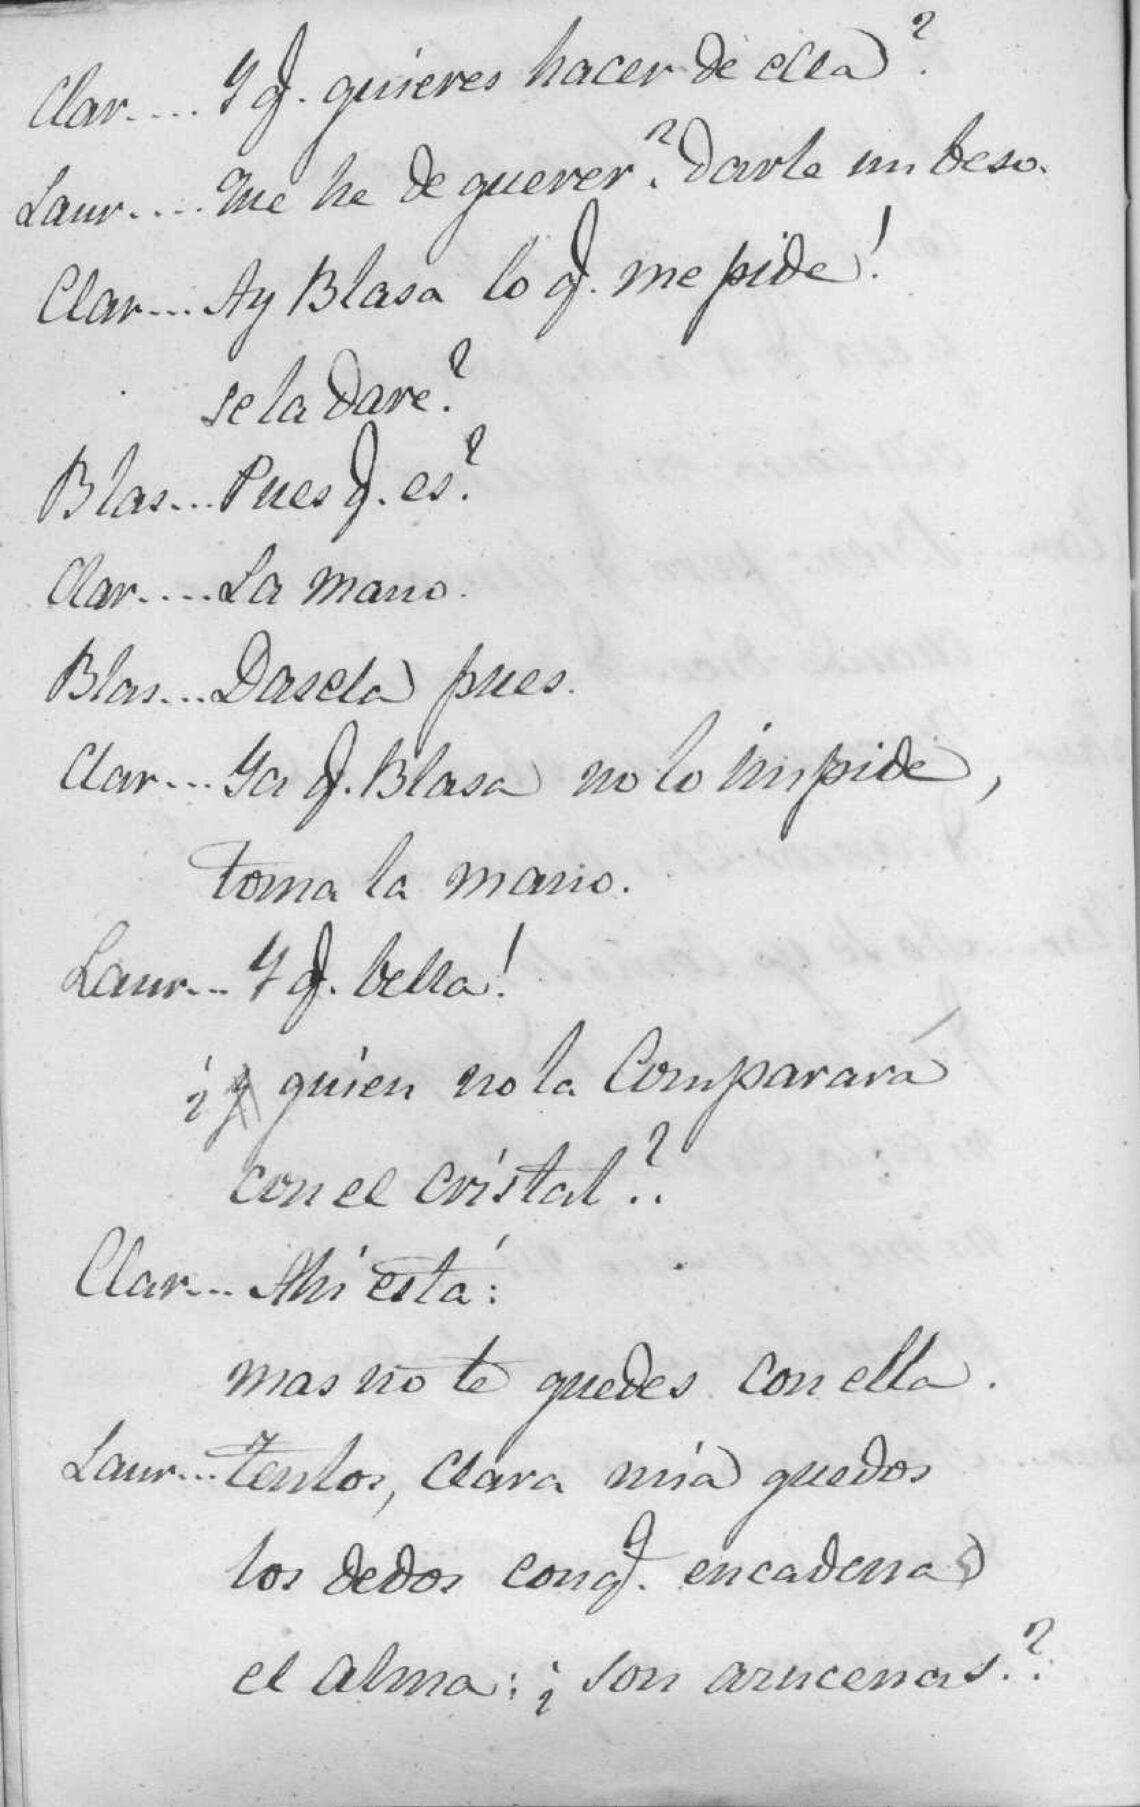 Clar.... Y q. quieres hacer de ella?
Laur.... Que he de querer? Darle un beso.
Clar... Ay Blasa lo q. me pide!
se la dare?
Blas... Pues q. es?
Clar.... La mano.
Blas... Dasela pues.
Clar... Ya q. Blasa no lo impide,
toma la mano.
Laur... Y q. bella!
¿y quien no la Comparará
con el cristal?.
Clar... Ahi está:
mas no te quedes con ella.
Laur... Tenlos, Clara mia quedos
los dedos conq. encadenas
el alma: ¿son azucenas?